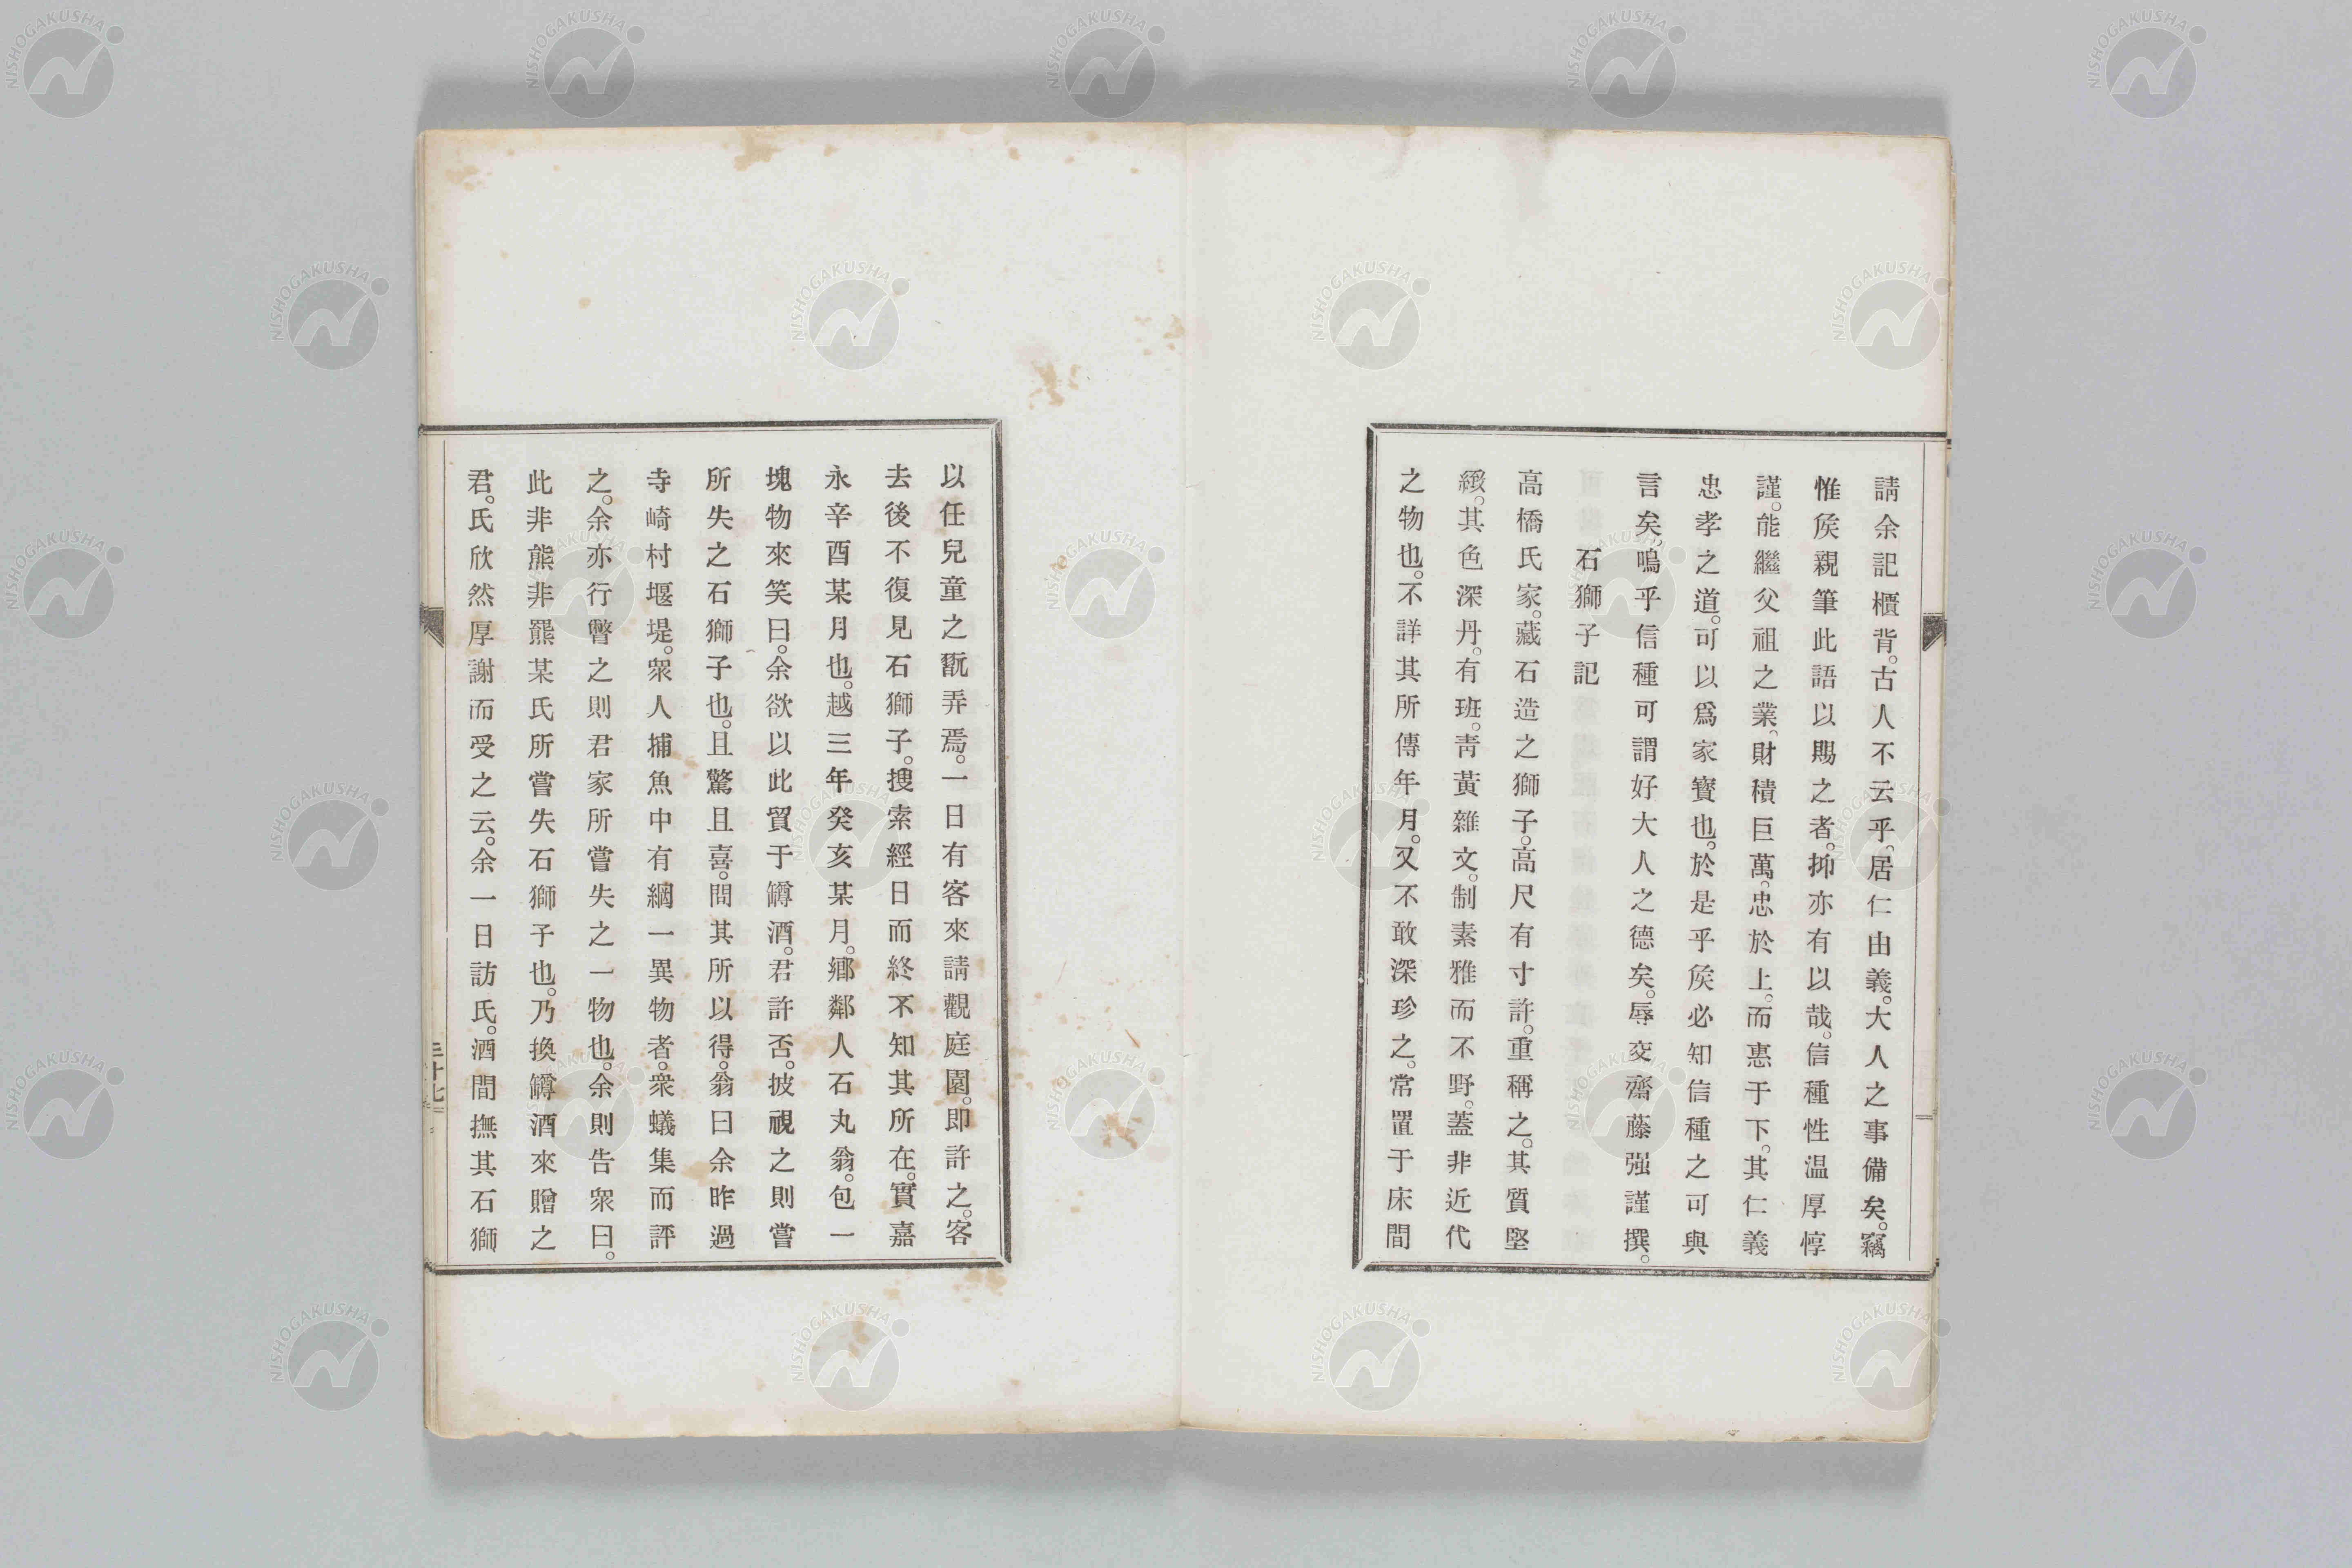 請余記櫃背。古人不云乎、居仁由義。大人之事備矣。竊
惟矦親筆此語以賜之者。抑亦有以哉。信種性温厚惇
謹。能繼父祖之業、財積巨萬。忠於上。而惠于下。其仁義
忠孝之道。可以爲家寳也。於是乎矦必知信種之可與
言矣、嗚乎信種可謂好大人之德矣。辱交齋藤强謹撰。
石獅子記
高橋氏家。藏石造之獅子。高尺有寸許。重稱之。其質堅
緻。其色深丹。有班。靑黃雜文。制素雅而不野。蓋非近代
之物也。不詳其所傳年月。又不敢深珍之。常置于床間
以任兒童之翫弄焉。一日有客來請觀庭園。即許之。客
去後不復見石獅子。搜索經日而終不知其所在。實嘉
永辛酉某月也。越三年癸亥某月。鄕鄰人石丸翁。包一
塊物來笑曰。余欲以此貿于鱒酒。君許否。披視之則嘗
所失之石獅子也。且驚且喜。問其所以得。翁曰余昨過
寺崎村堰堤。衆人捕魚中有綱一異物者。衆蟻集而評
之。余亦行瞥之則君家所嘗失之一物也。余則告衆曰。
此非熊非羆某氏所嘗失石獅子也。乃換鱒酒來贈之
君。氏欣然厚謝而受之云。余一日訪氏。酒間撫其石獅
NISHOGAKUSHA